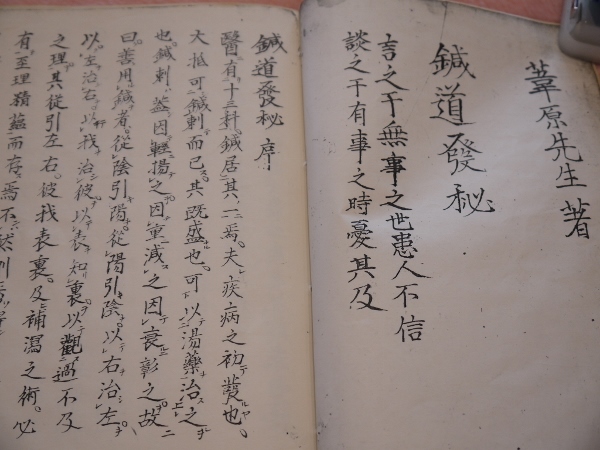 葦原先生著
鍼道發秘
言之于無事之世患人不信
談之于有事之時憂其及
鍼道發秘序
醫有十三科鍼居其一焉夫疾病之初發也
大抵可鍼刺而已其既盛也可以湯藥治之
也鍼刺蓋因輕揚之因重減之因衰彰之故
曰善用鍼者從陰引陽從陽引陰以右治左
以左治右以我治彼以表知裏以觀過不及
之理其從引左右彼我表裏及補瀉之術必
有至理賾蘊而存焉不